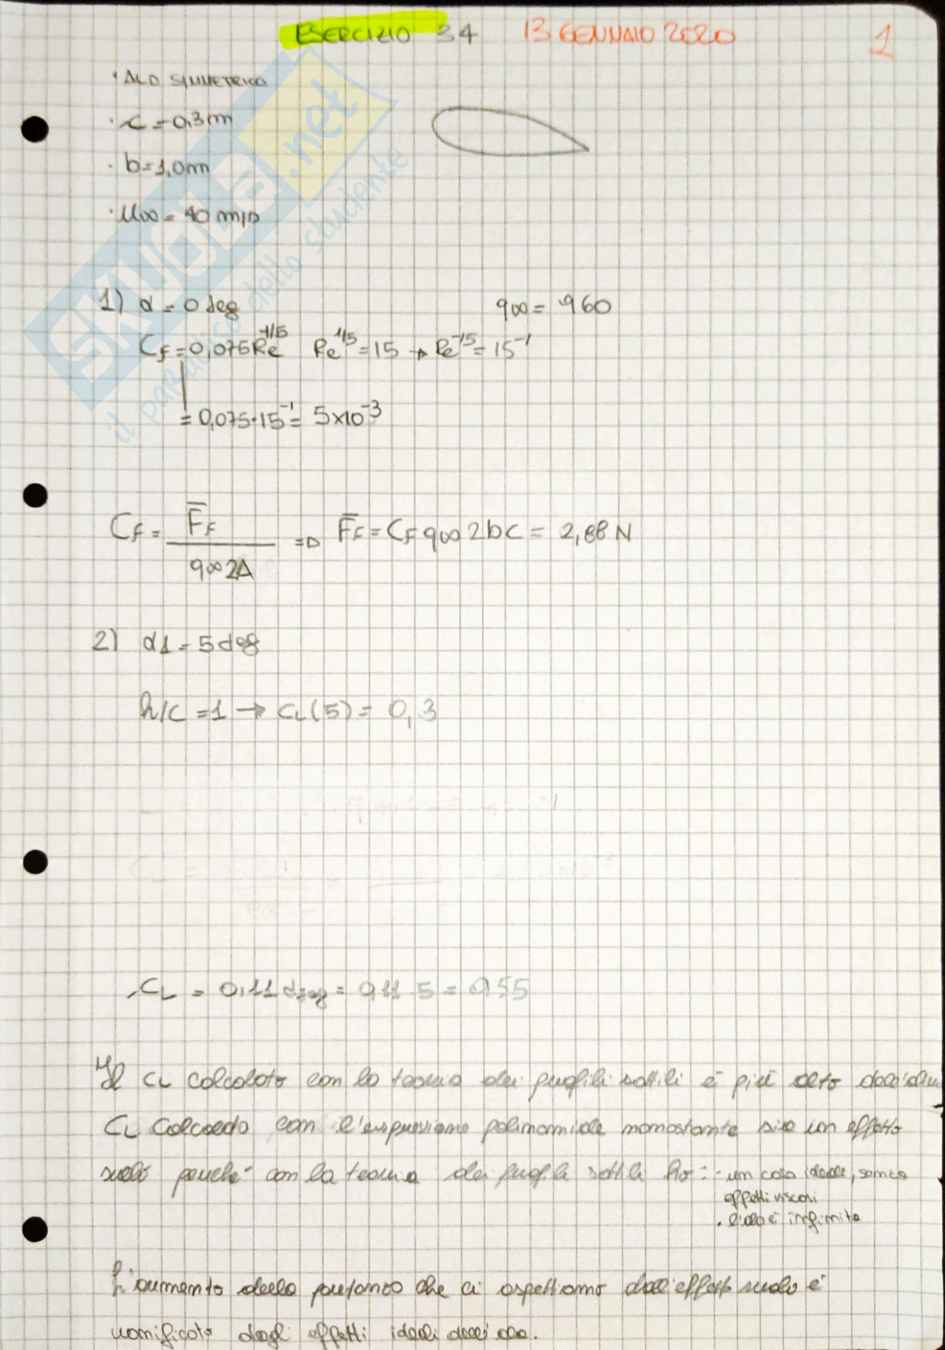 ESERCIZIO 34 13 GENNAIO 2020 1
· ALA SIMMETRICA
· c = 0,3m
· b = 1,0m
· U∞ = 40 m/s
1) α = 0 deg q∞ = 960
CF = 0,075 Re^-1/5 Re^1/5 = 15 → Re^-1/5 = 15^-1
= 0,075·15^-1 = 5x10^-3
CF = F̅F / q∞2A => F̅F = CF q∞ 2bc = 2,88 N
2) α1 = 5 deg
h/c = 1 → CL(5) = 0,3
CL = 0,11 deg = 0,11·5 = 0,55
Il CL calcolato con la teoria dei profili sottili è più alto
CL con l'espressione polinomiale nonostante sia un effetto
suolo perché con la teoria dei profili sottili ho: - un caso ideale, senza
effetti viscosi
· l'ala è infinita
L'aumento della portanza che ci aspettiamo dall'effetto suolo è
vanificato dagli effetti ideali dell'ala.
SKUOLA.net
il paradiso dello studente